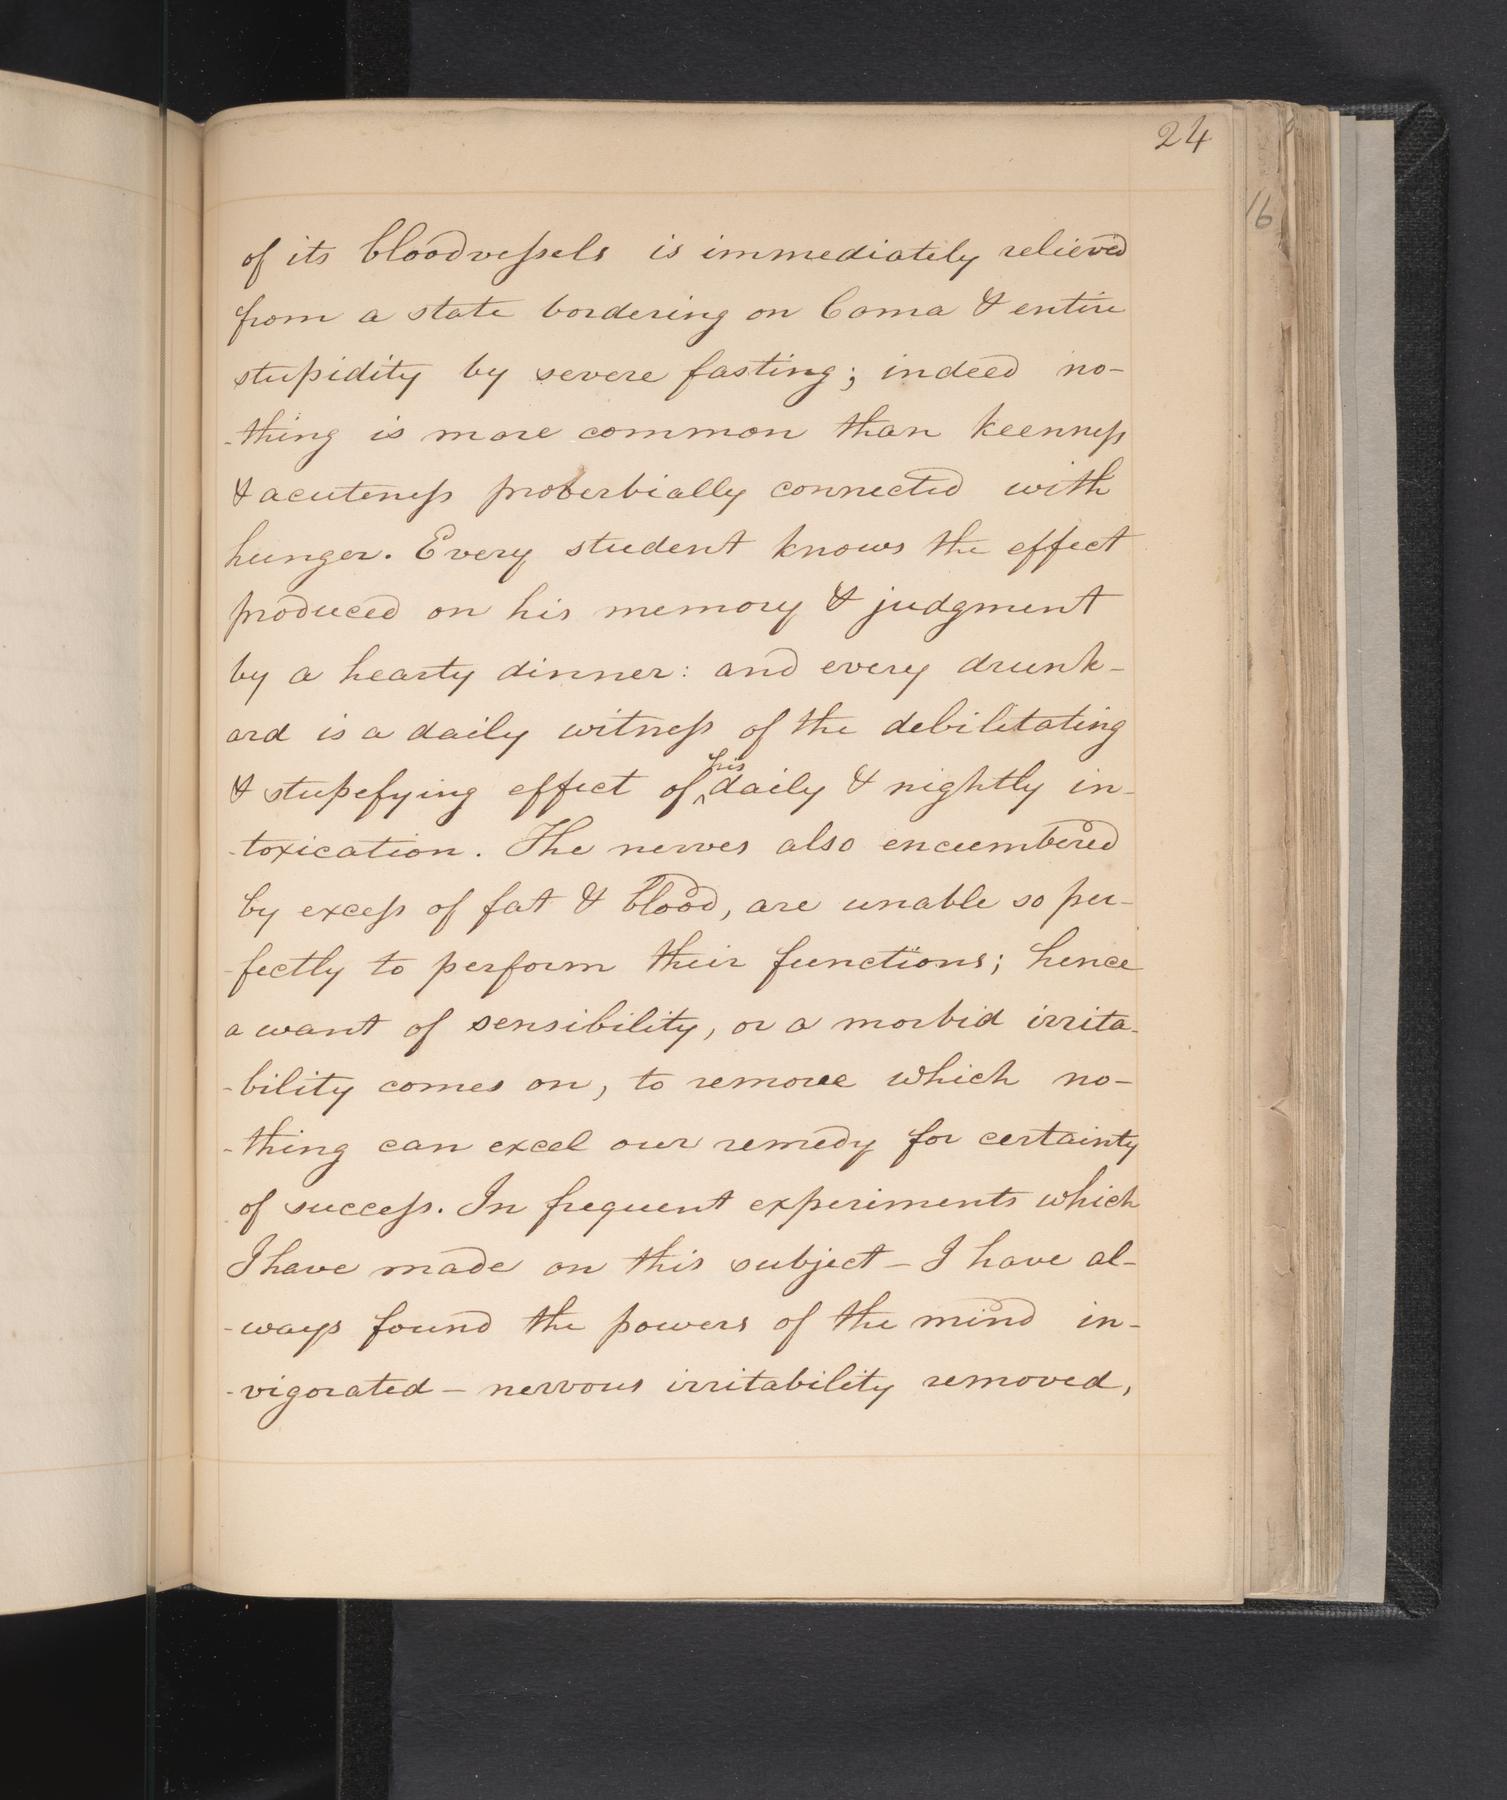 24
16
of its bloodvessels is immediately relieved
from a state bordering on Coma & entire
stupidity by severe fasting; indeed no-
-thing is more common than keenness
& acuteness proverbially connected with
hunger. Every student knows the effect
produced on his memory & judgment
by a hearty dinner: and every drunk-
ard is a daily witness of the debilitating
& stupefying effect of ^his daily & nightly in-
-toxication. The nerves also encumbered
by excess of fat & blood, are unable so per-
-fectly to perform their functions; hence
a want of sensibility, or a morbid irrita-
-bility comes on, to remove which no-
-thing can excel our remedy for certainty
of success. In frequent experiments which
I have made on this subject - I have al-
-ways found the powers of the mind in-
-vigorated - nervous irritability removed,